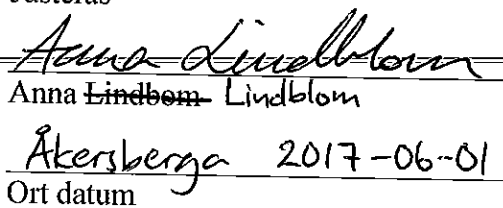 Justeras
Anna Lindblom
Anna Lindbom Lindblom
Åkersberga 2017-06-01
Ort datum